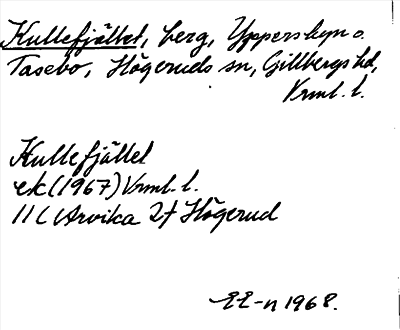 Kullefjället, berg, Ypperskyn o.
Tasebo, Högeruds sn, Gillbergs hd,
Vrml. l.
Kullefjället
ek (1967) Vrml. l.
11 C Arvika 2f Högerud
EE-n 1968.